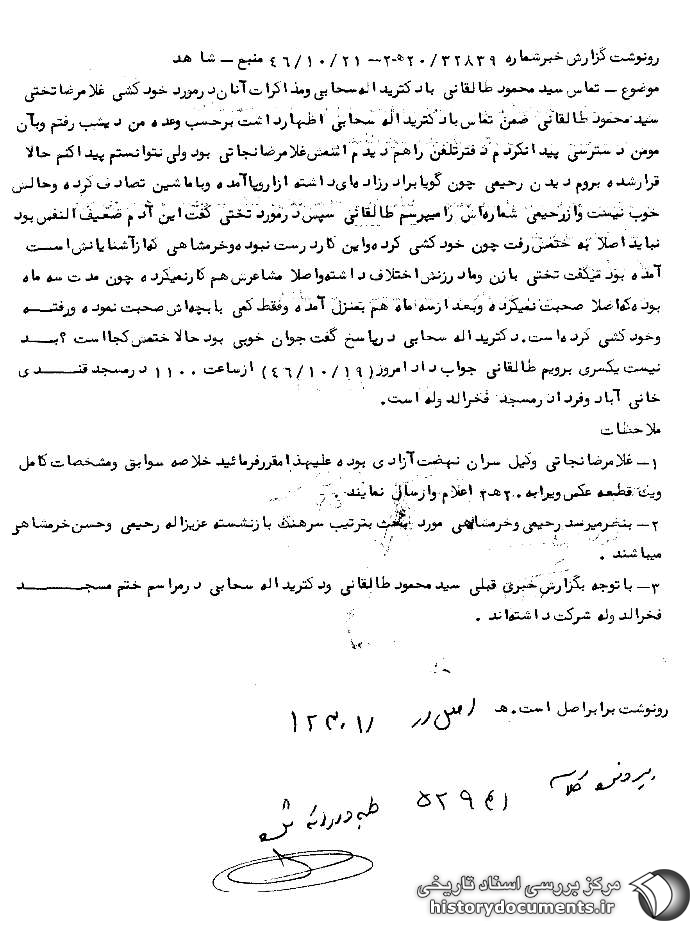 رونوشت گزارش خبر شماره ۳۲۸۳۹/ ۲۰ه۲ــ ۴۶/۱۰/۲۱ منبع ــ شاهد
موضوع ــ تماس سید محمود طالقانی با دکتر یداله سحابی و مذاکرات آنان در مورد خودکشی غلامرضا تختی
سید محمود طالقانی ضمن تماس با دکتر یداله سحابی اظهار داشت برحسب وعده من دیشب رفتم و بآن
مومن دسترسی پیدا نکردم دفتر تلفن را هم دیدم اسمش غلامرضا نجاتی بود ولی نتوانستم پیدا کنم حالا
قرار شده بروم دیدن رحیمی چون گویا برادرزاده‌ای داشته از اروپا آمده و با ماشین تصادف کرده و حالش
خوب نیست و از رحیمی شماره‌اش را میپرسم طالقانی سپس در مورد تختی گفت این آدم ضعیف النفس بود
نباید اصلا به ختمش رفت چون خودکشی کرده و این کار درست نبوده و خرمشاهی که از آشنایانش است
آمده بود میگفت تختی با زن و مادر زنش اختلاف داشته و اصلا مشاعرش هم کار نمیکرده چون مدت سه ماه
بوده که اصلا صحبت نمیکرده و بعد از سه ماه هم بمنزل آمده و فقط کمی با بچه‌اش صحبت نموده و رفته
و خودکشی کرده است. دکتر یداله سحابی در پاسخ گفت جوان خوبی بود حالا ختمش کجا است ؟ بد
نیست یکسری برویم طالقانی جواب داد امروز (۴۶/۱۰/۱۹) از ساعت ۱۱۰۰ در مسجد قندی
خانی آباد و فردا در مسجد فخرالدوله است.
ملاحظات
۱ــ غلامرضا نجاتی وکیل سران نهضت آزادی بوده علیهذا مقرر فرمائید خلاصه سوابق و مشخصات کامل
ویک قطعه عکس ویرا به ۲۰ه۲ اعلام و ارسال نمایند .
۲ــ بنظر میرسد رحیمی و خرمشاهی مورد بحث بترتیب سرهنگ بازنشسته عزیزاله رحیمی و حسن خرمشاهی
میباشند .
۳ــ با توجه بگزارش خبری قبلی سید محمود طالقانی و دکتر یداله سحابی در مراسم ختم مسجد
فخرالدوله شرکت داشته‌اند .
رونوشت برابر اصل است. هـ اصل در
کلاسه
مرکز بررسی اسناد تاریخی
historydocuments.ir